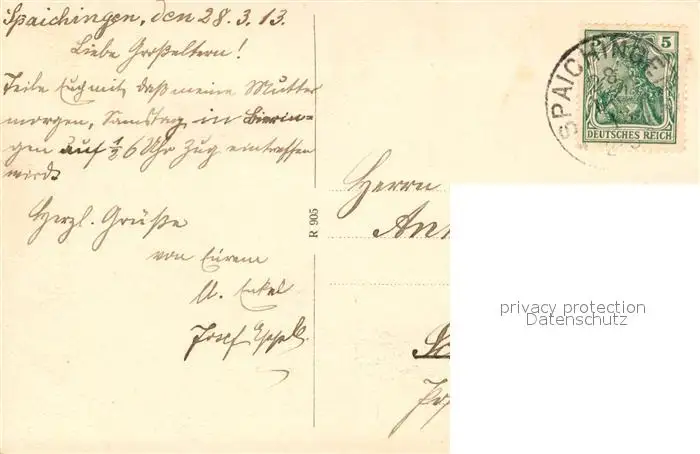 Spaichingen, den 28.3.13.
Liebe Großeltern!
Teile Euch mit, daß meine Mutter
morgen, Samstag, in Bierin-
gen auf ½6 Uhr Zug eintreffen
wird.
Herzl. Grüße
von Eurem
Enkel
Josef
R 905
Herrn
SPAICHINGE
5
DEUTSCHES REICH
privacy protection
Datenschutz